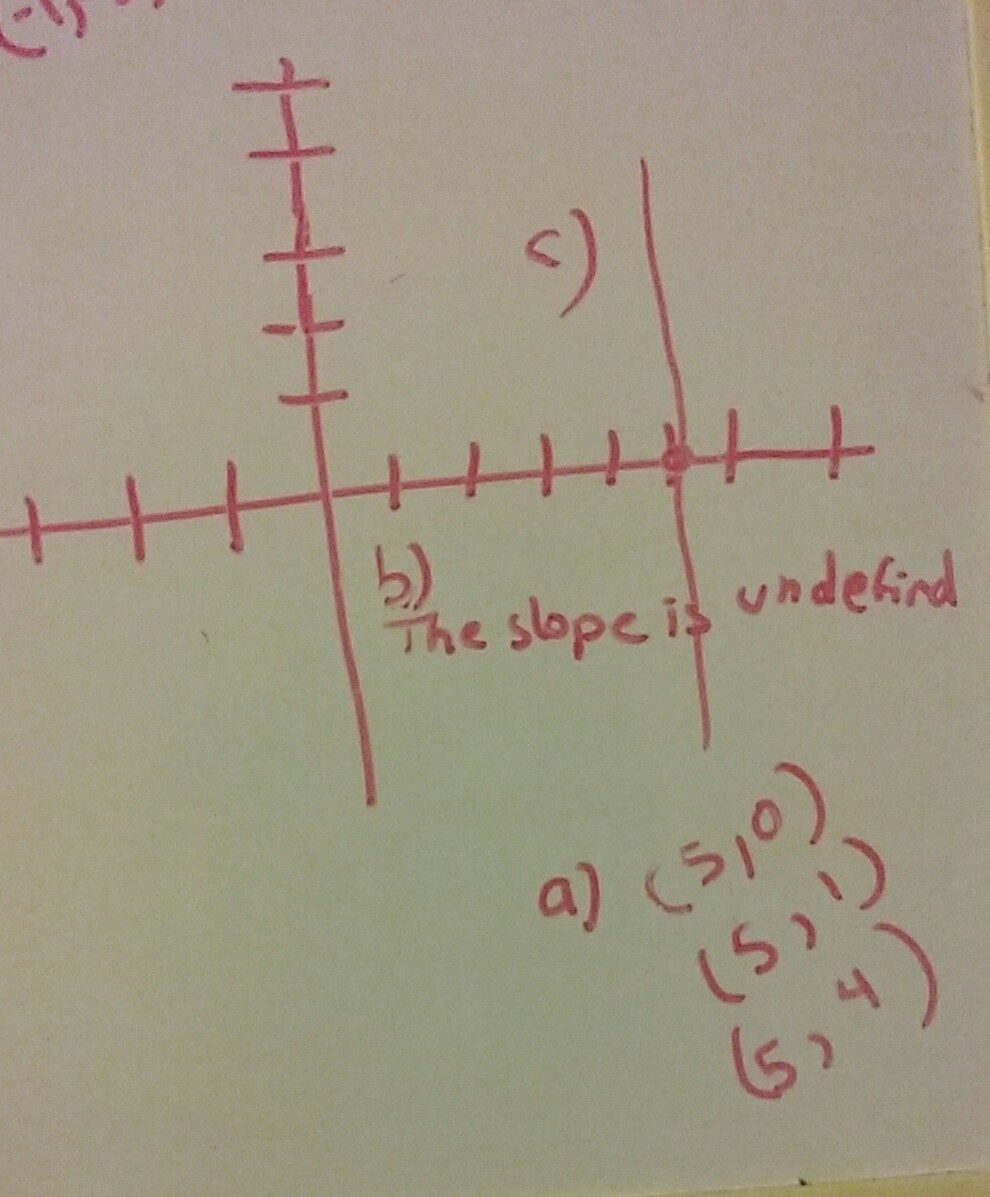 c)
b)
The slope is undefind
a) (5,0)
(5,1)
(5,4)